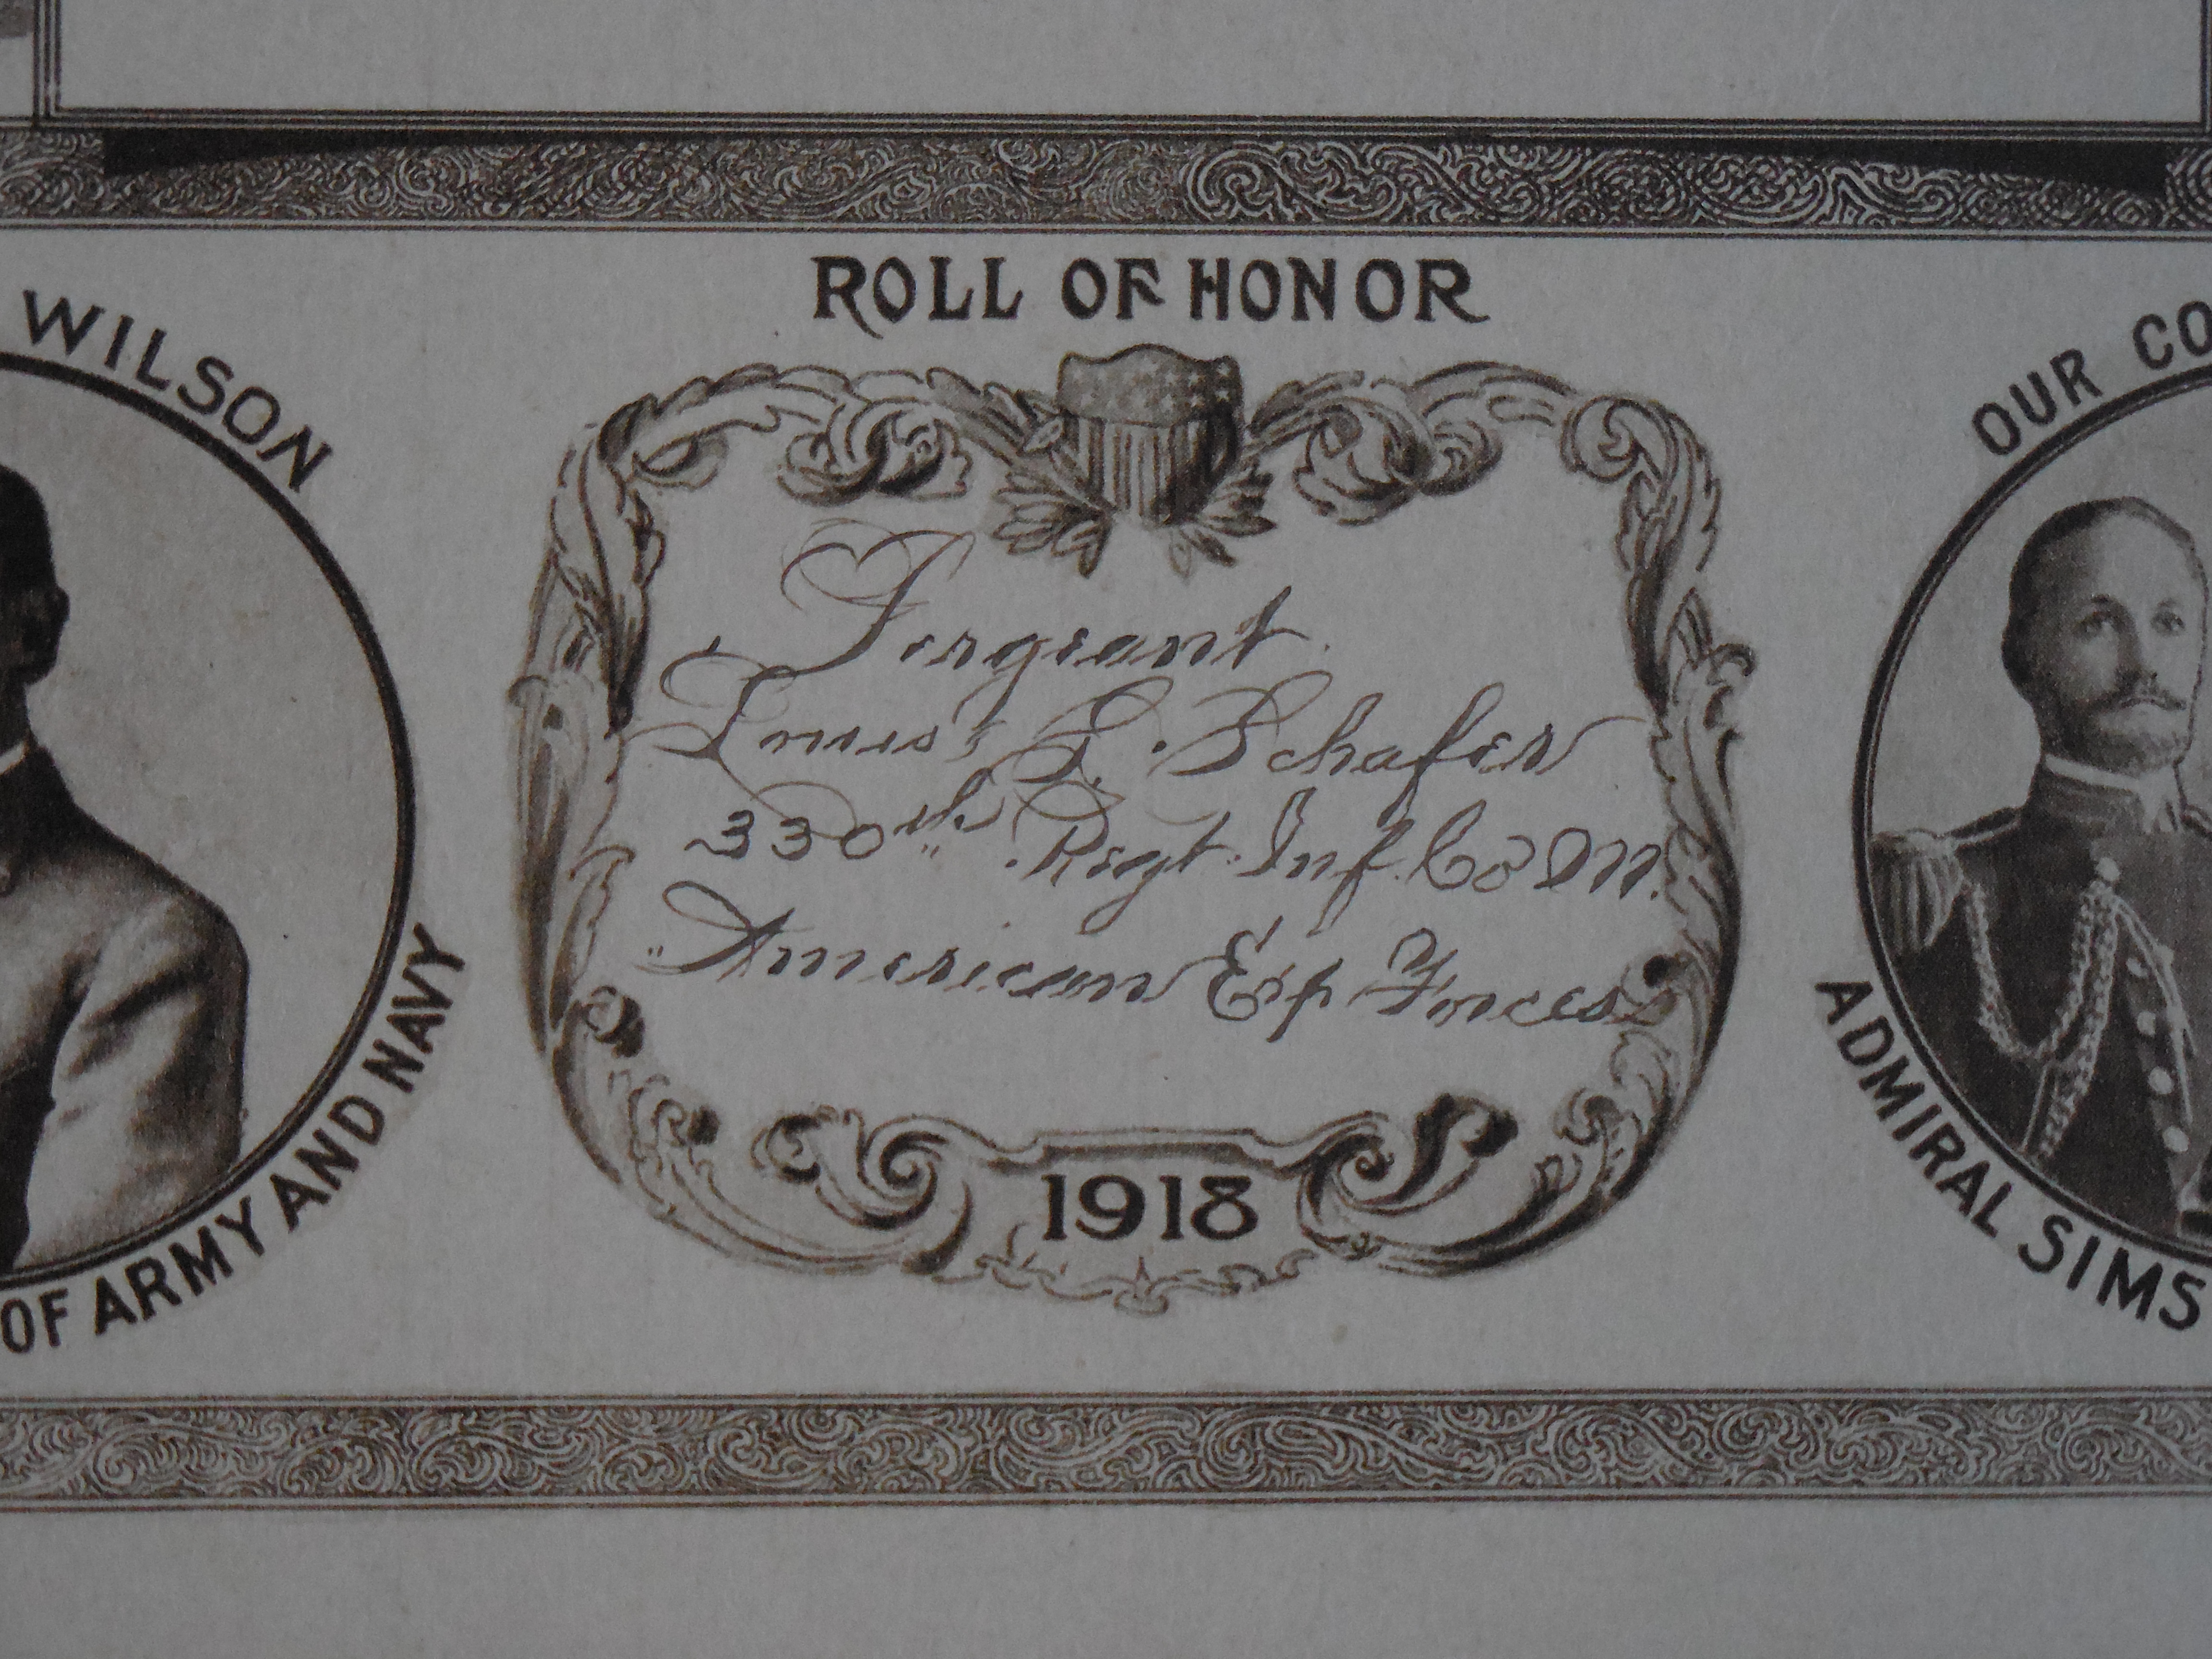 ROLL OF HONOR
WILSON
OF ARMY AND NAVY
Sergeant
Louis G. Schafer
330th Regt. Inf. Co. M.
American Exp Forces
1918
OUR CO
ADMIRAL SIMS